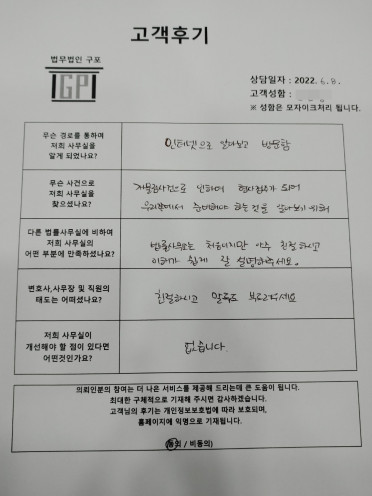 고객후기
법무법인 구포
GP
상담일자 : 2022. 6. 8.
고객성함 :
※ 성함은 모자이크처리 됩니다.
무슨 경로를 통하여
저희 사무실을
알게 되었나요?
인터넷으로 알아보고 방문함
무슨 사건으로
저희 사무실을
찾으셨나요?
재물손괴사건으로 인하여 형사접수가 되어
우리쪽에서 준비해야 하는 것을 알아보기 위해
다른 법률사무실에 비하여
저희 사무실의
어떤 부분에 만족하셨나요?
법률사무소는 처음이지만 아주 친절하시고
이해가 쉽게 잘 설명해주세요.
변호사,사무장 및 직원의
태도는 어떠셨나요?
친절하시고 말투도 부드러우세요
저희 사무실이
개선해야 할 점이 있다면
어떤것인가요?
없습니다.
의뢰인분의 참여는 더 나은 서비스를 제공해 드리는데 큰 도움이 됩니다.
최대한 구체적으로 기재해 주시면 감사하겠습니다.
고객님의 후기는 개인정보보호법에 따라 보호되며,
홈페이지에 익명으로 기재됩니다.
(동의 / 비동의)